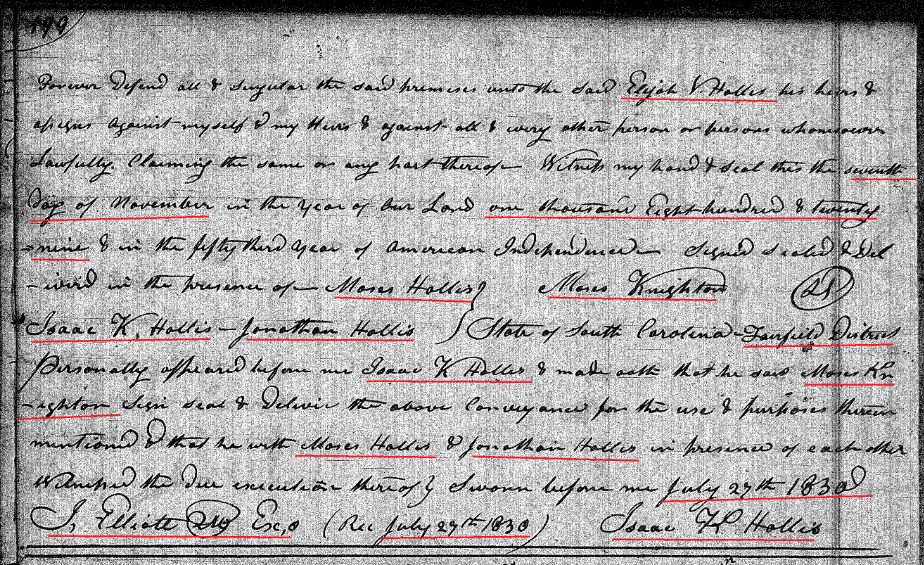 199
Forever Defend all & Singular the said premises unto the said Elijah V Hollis his heirs &
assigns against myself & my Heirs & against all & every other person or persons whomsoever
Lawfully Claiming the same or any part thereof Witness my hand & Seal this the seventh
Day of November in the Year of Our Lord one thousand Eight hundred & twenty
-nine & in the fifty third Year of American Independence Signed Sealed & Del
-iverd in the presence of Moses Hollis } Moses Knighton
Isaac K. Hollis - Jonathan Hollis } State of South Carolina Fairfield District
Personally appeared before me Isaac K Hollis & made oath that he saw Moses Kn
-ighton Sign seal & Deliver the above Conveyance for the use & purposes therein
mentioned & that he with Moses Hollis & Jonathan Hollis in presence of each other
Witnessed the due execution thereof } Sworn before me July 27th 1830
J, Elliott Ex,o (Rec July 27th 1830) Isaac K Hollis